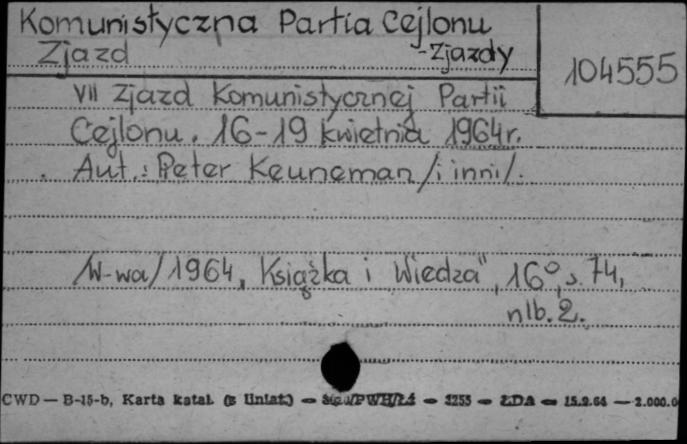 Komunistyczna Partia Cejlonu
Zjazd -Zjazdy
104555
VII Zjazd Komunistycznej Partii
Cejlonu. 16-19 kwietnia 1964r.
Aut.: Peter Keuneman /i inni/.
/W-wa/ 1964, "Książka i Wiedza", 16°, s. 74,
nlb. 2.
CWD — B-15-b, Karta katal. (z liniat.) — /PWH/Łź — 3253 — ŁDA — 15.2.64 — 2.000.0